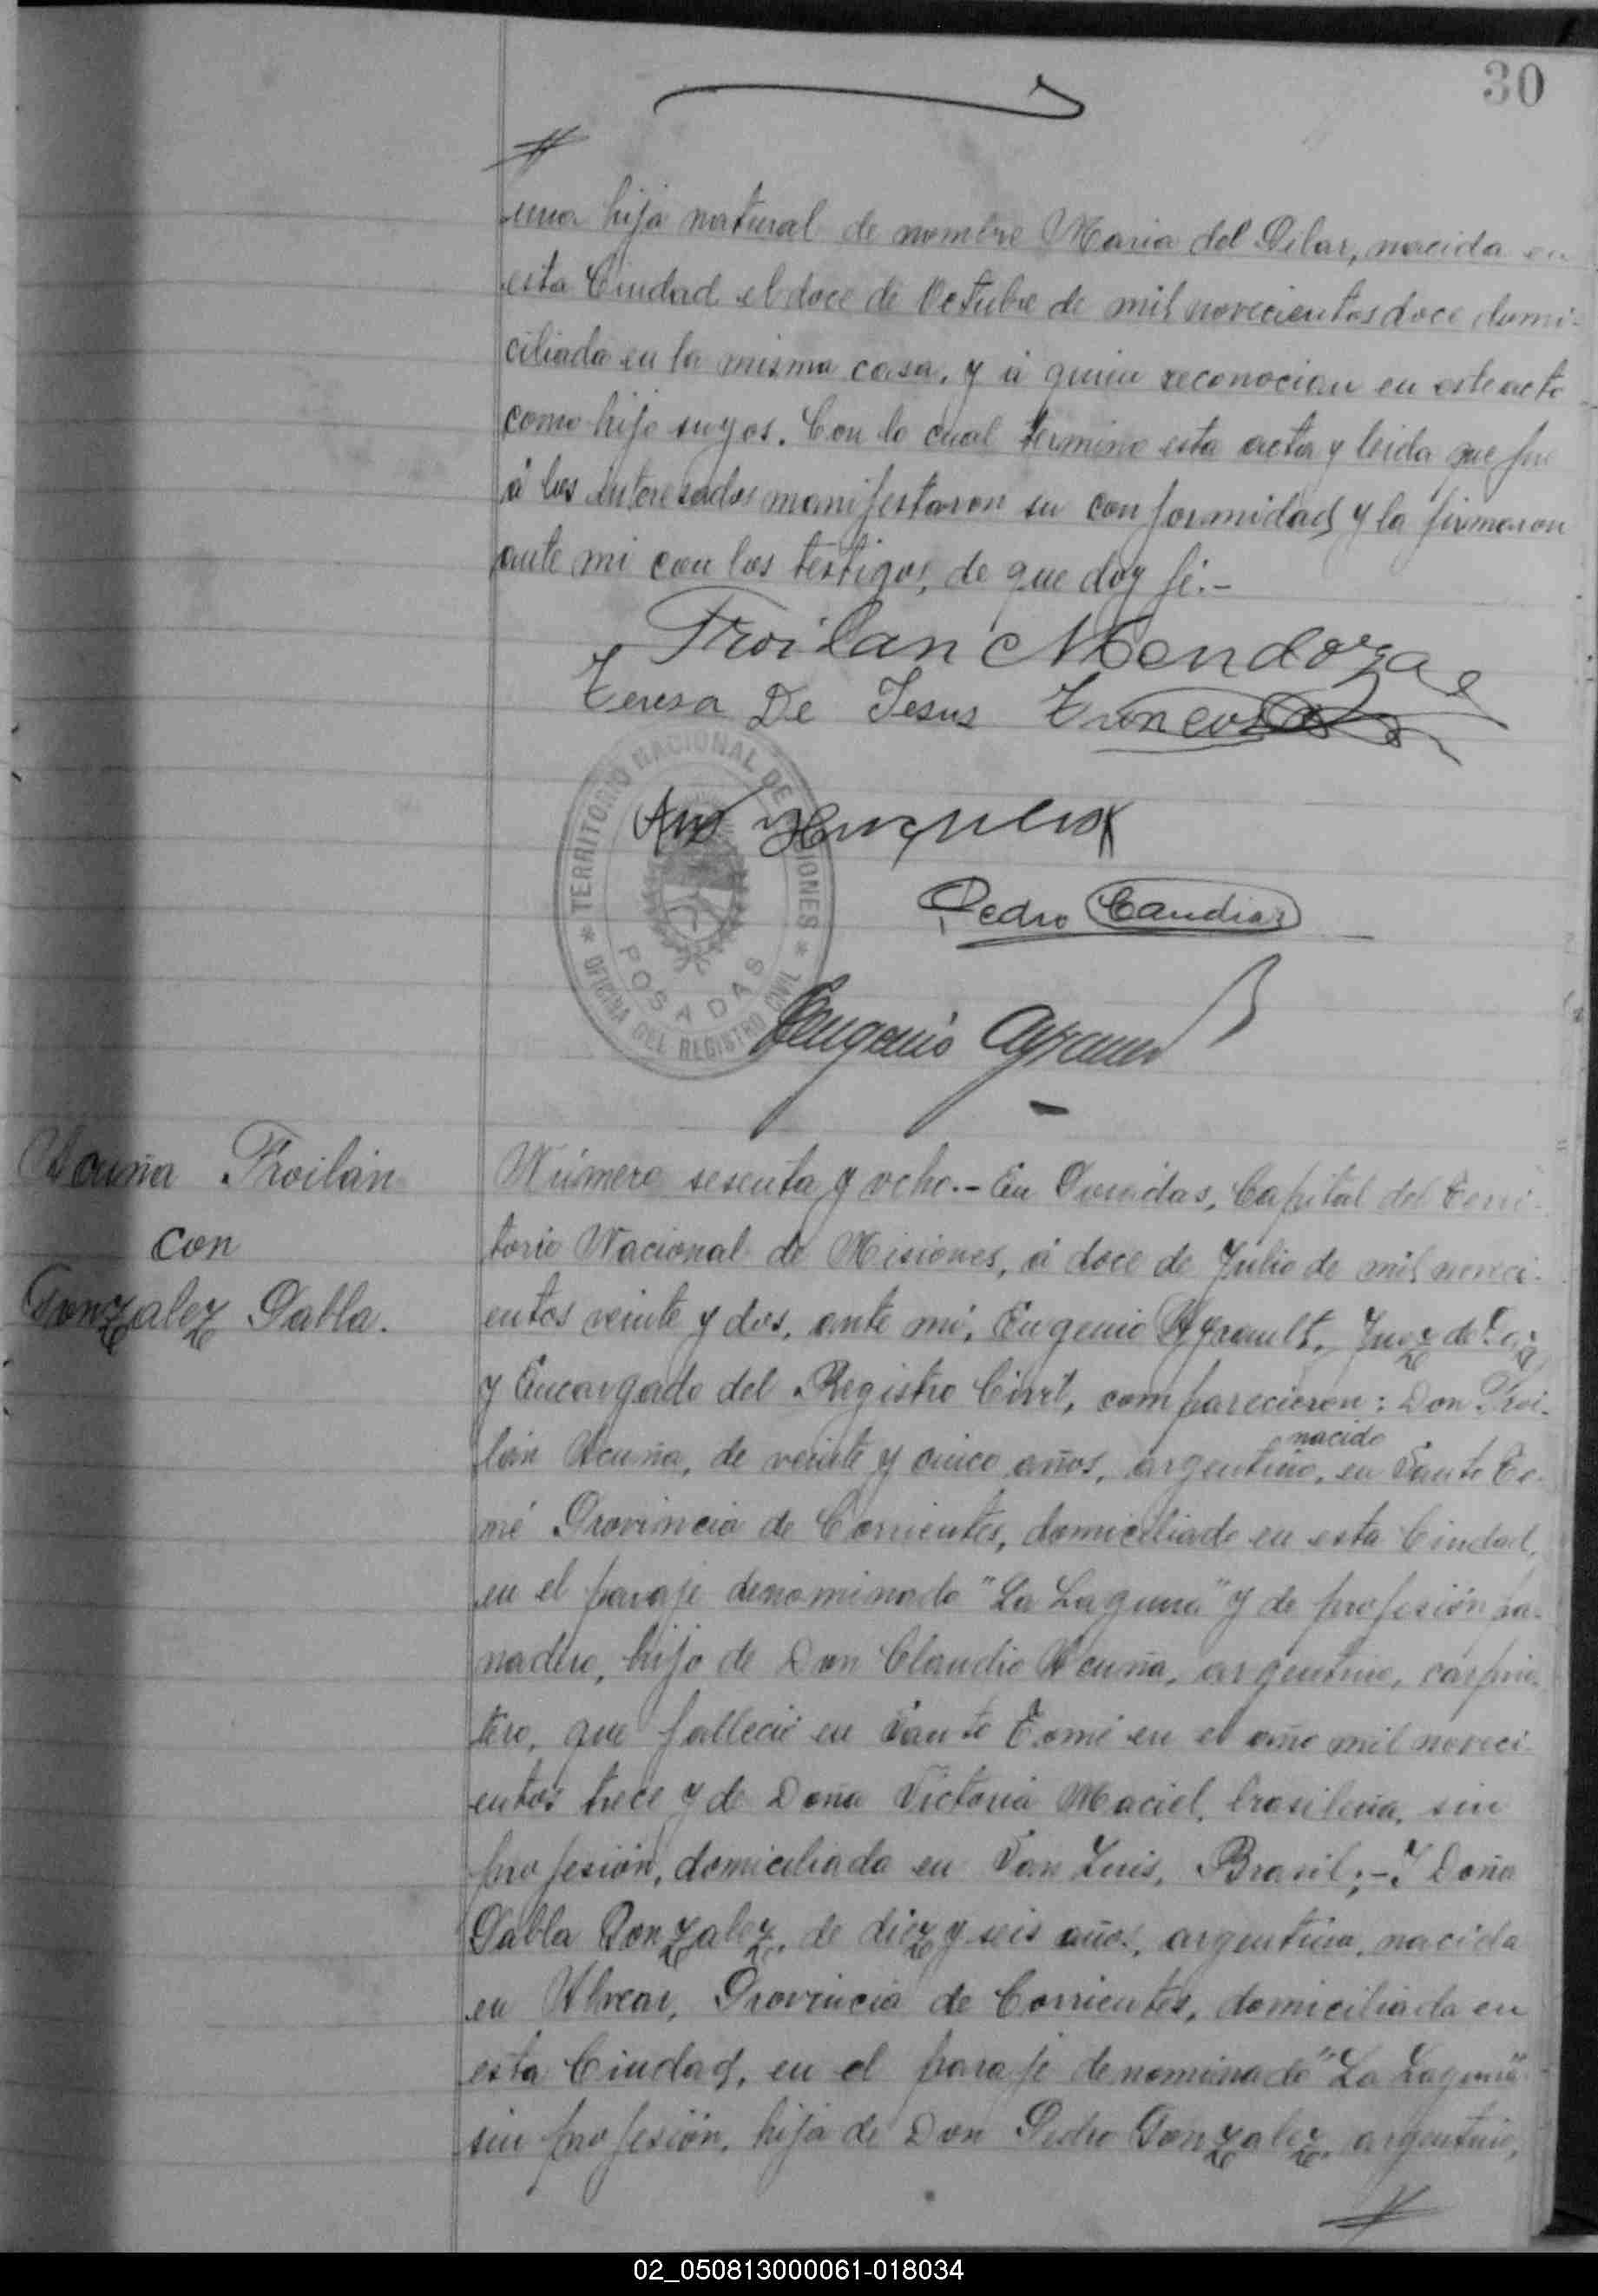 30
una hija natural de nombre Maria del Pilar, nacida en
esta Ciudad el doce de Octubre de mil novecientos doce domi-
ciliada en la misma casa, y á quien reconocian en este acto
como hijo suyos. Con lo cual termino esta acta y leida que fue
á los interesados manifestaron su conformidad y la firmaron
ante mi con los testigos, de que doy fé.-
Froilan Mendoza
Teresa De Jesus
TERRITORIO NACIONAL DE MISIONES
POSADAS
OFICINA DEL REGISTRO CIVIL
Pedro Candia
Eugenio Ayrault
Acuña Froilán
con
Gonzalez Pabla.
Número sesenta y ocho.- En Posadas, Capital del Terri-
torio Nacional de Misiones, á doce de Julio de mil noveci-
entos veinte y dos, ante mí, Eugenio Ayrault, Juez de Paz
y Encargado del Registro Civil, comparecieron: Don Froi-
nacido
lán Acuña, de veinte y cinco años, argentino, en Santo To-
mé Provincia de Corrientes, domiciliado en esta Ciudad,
en el paraje denominado "La Laguna" y de profesión pa-
nadero, hijo de Don Claudio Acuña, argentino, carpin-
tero, que falleció en Santo Tomé en el año mil noveci-
entos trece y de Doña Victoria Maciel, brasileña, sin
profesión, domiciliada en San Luis, Brasil;- Y Doña
Pabla Gonzalez, de diez y seis años, argentina, nacida
en Alvear, Provincia de Corrientes, domiciliada en
esta Ciudad, en el paraje denominado "La Laguna"
sin profesión, hija de Don Pedro Gonzalez, argentino,
02_050813000061-018034